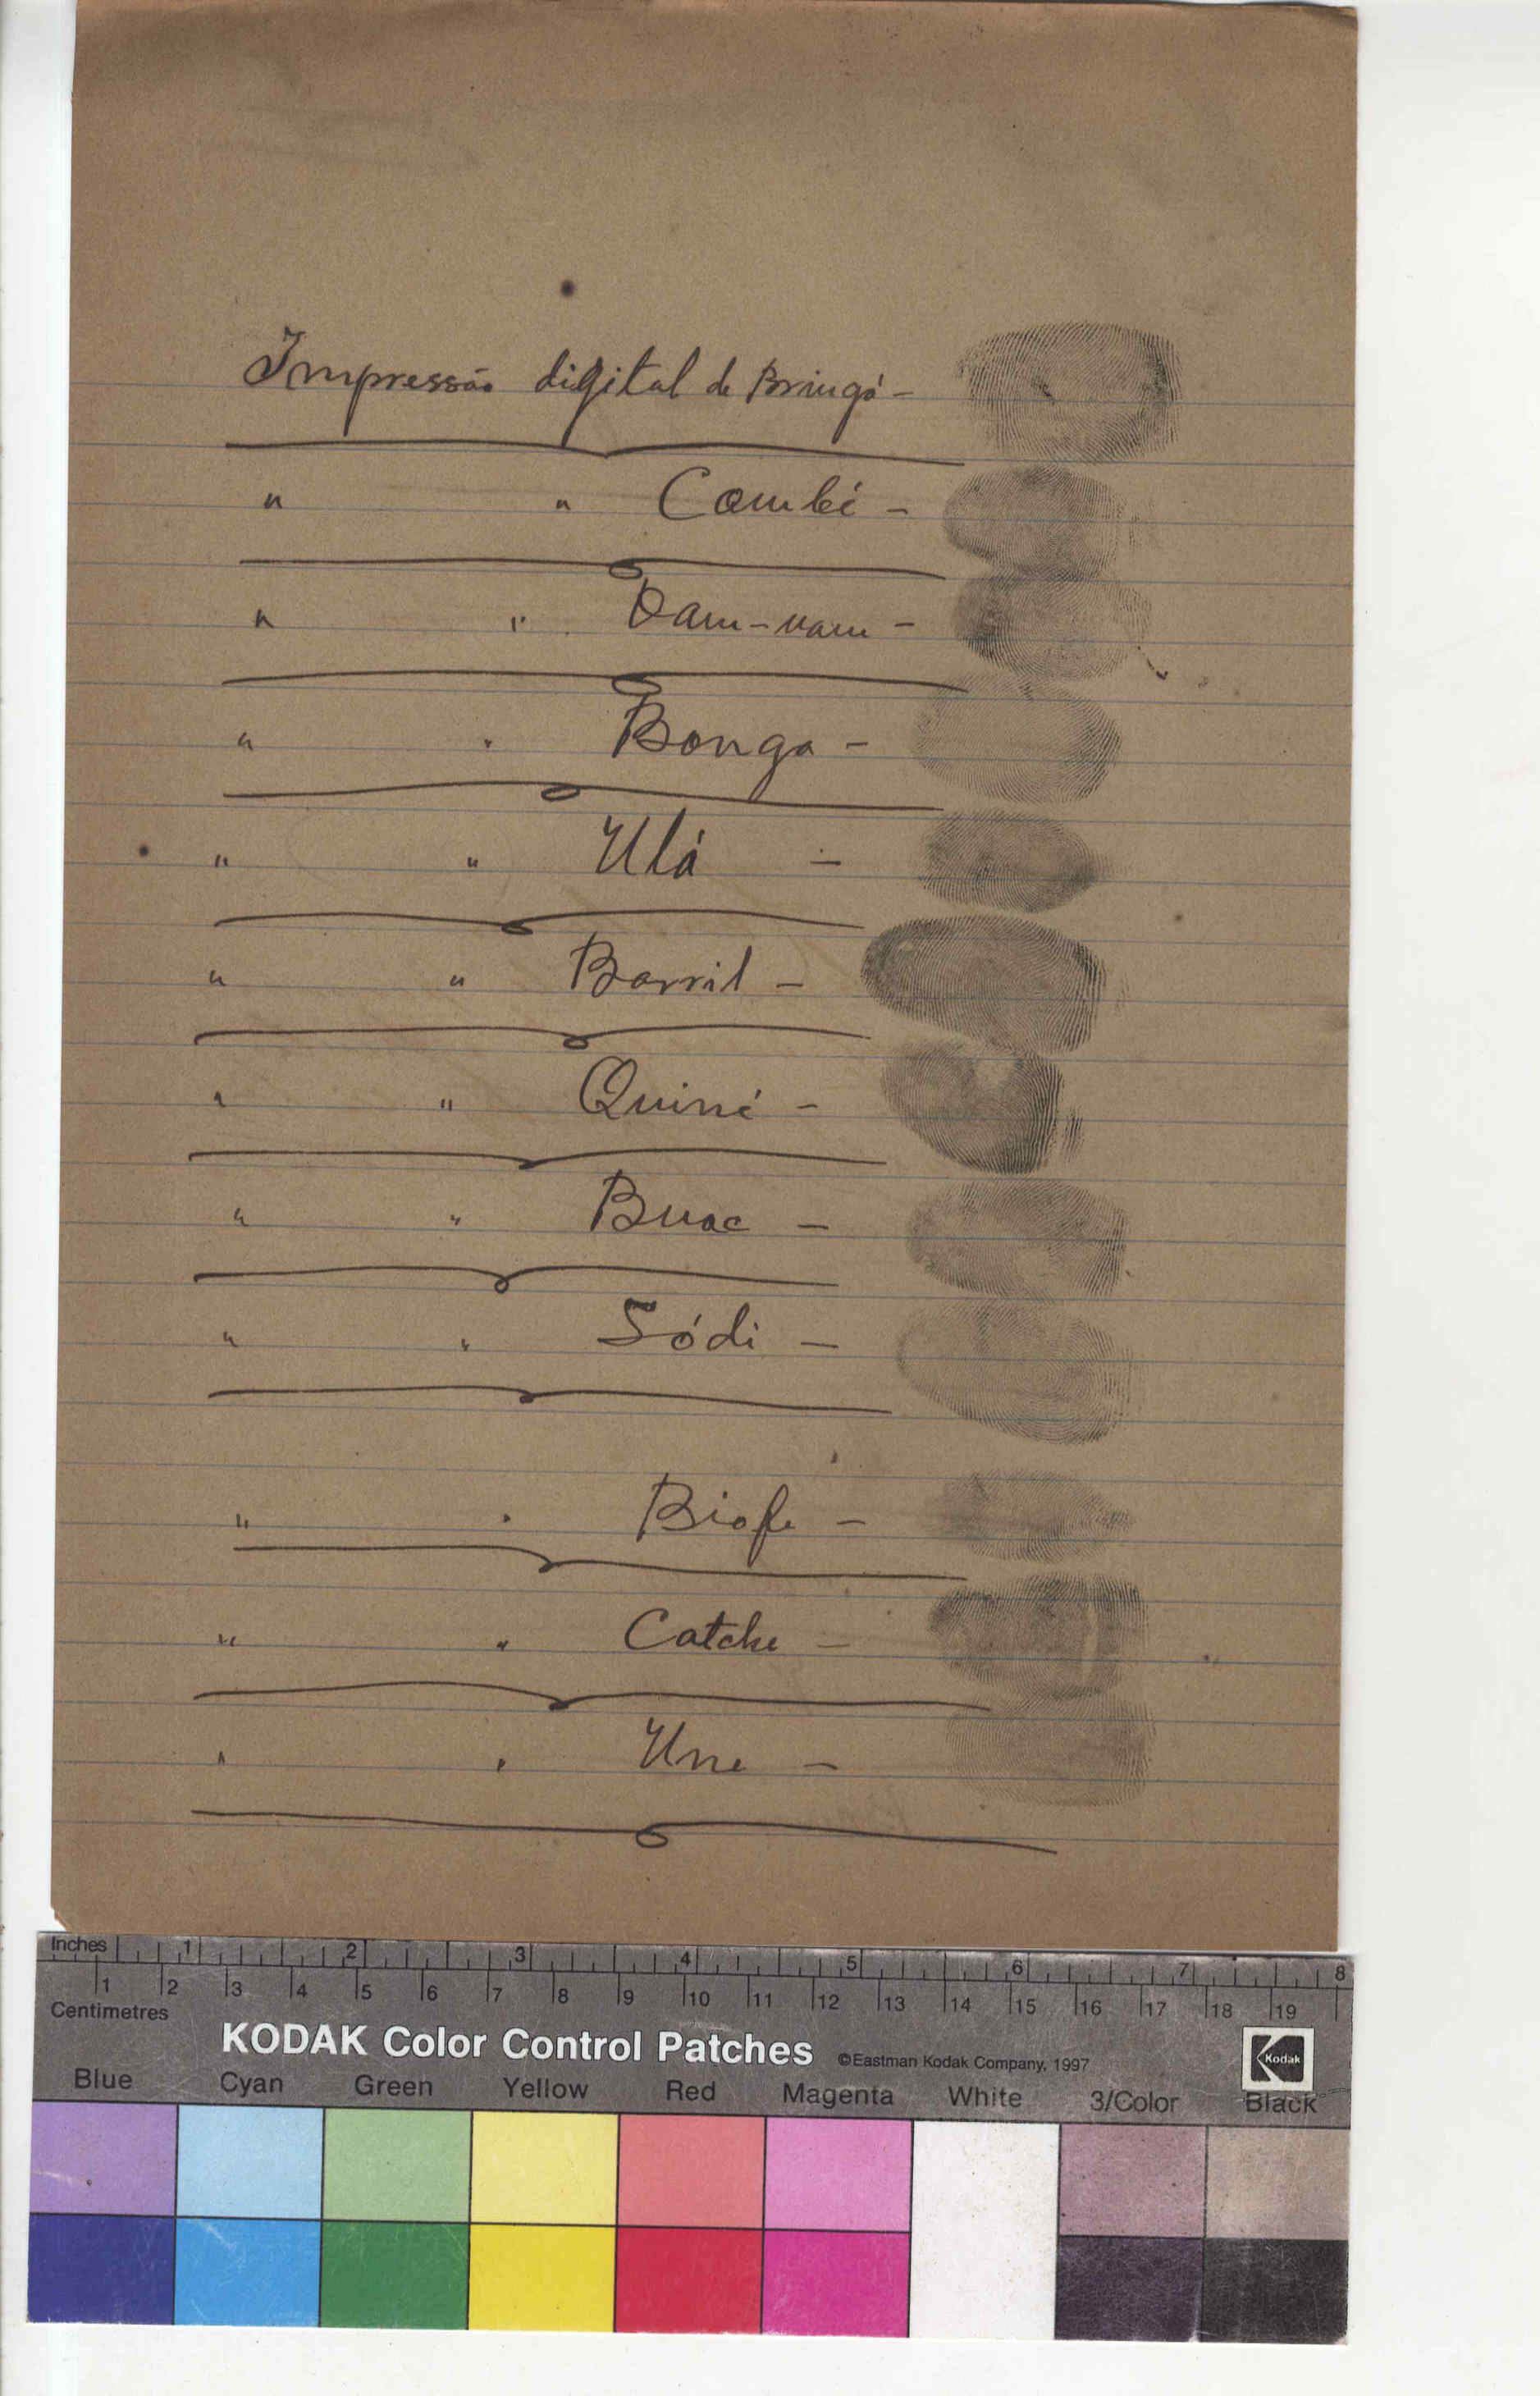 Impressão digital de Bringó -
" " Combé -
" " Dam-nam -
" " Bonga -
" " Ulá -
" " Barril -
" " Quiné -
" " Buac -
" " Sódi -
" " Biofe -
" " Catche -
" " Une -
Inches 1 2 3 4 5 6 7 8
1 2 3 4 5 6 7 8 9 10 11 12 13 14 15 16 17 18 19
Centimetres
KODAK Color Control Patches ©Eastman Kodak Company, 1997 Kodak
Blue Cyan Green Yellow Red Magenta White 3/Color Black